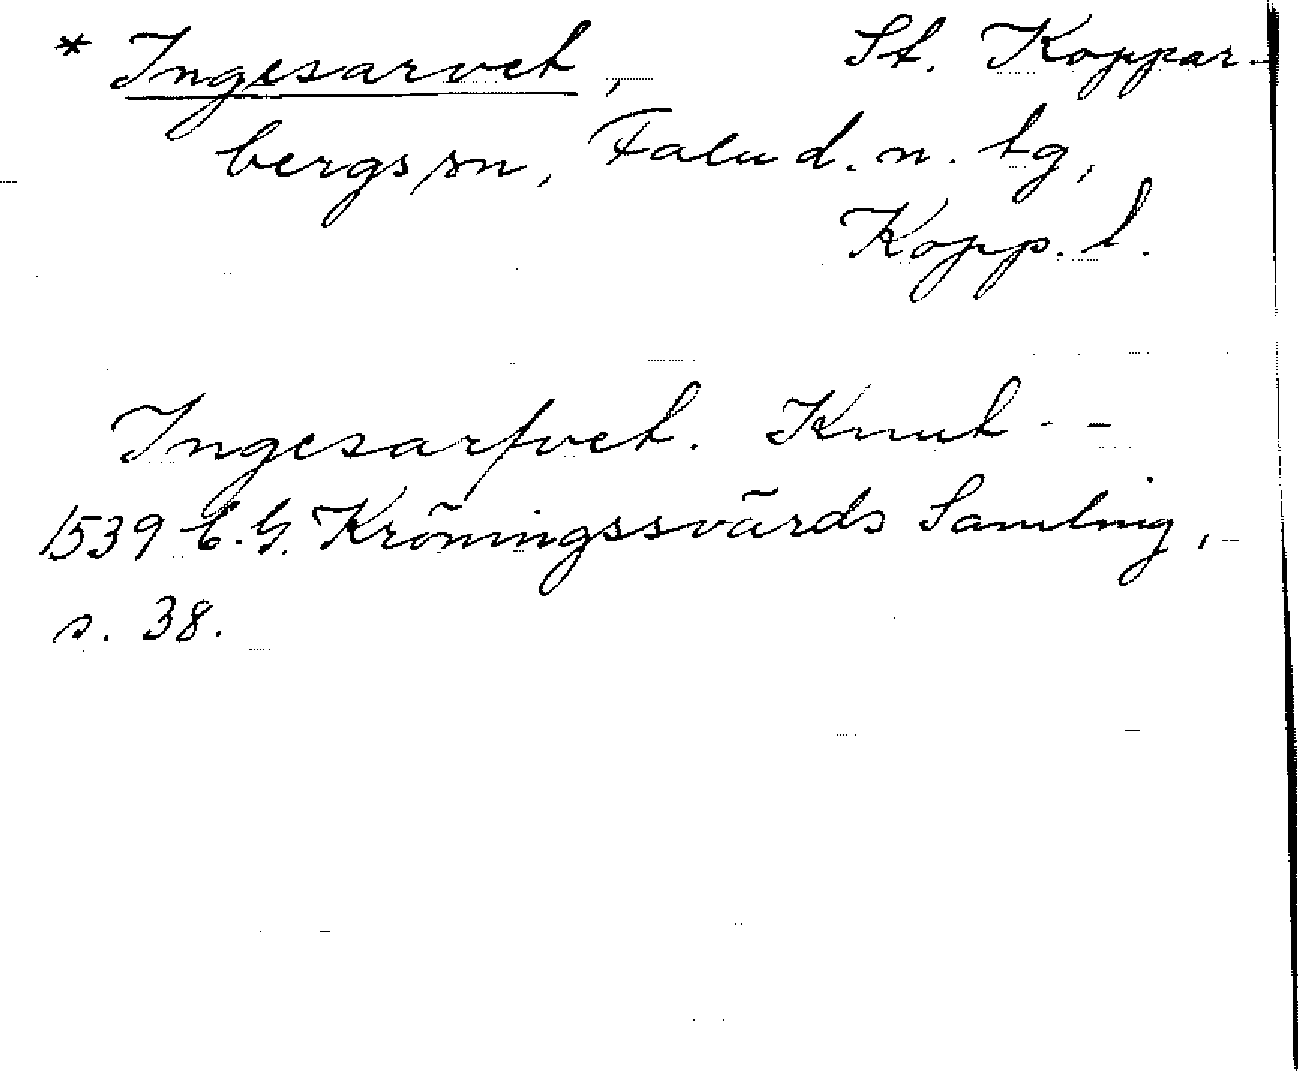 * Ingesarvet, St. Koppar-
bergs sn, Falu d. n. tg,
Kopp. l.
Ingesarfvet. Knut - -
1539 C.G. Kröningssvärds Samling,
s. 38.